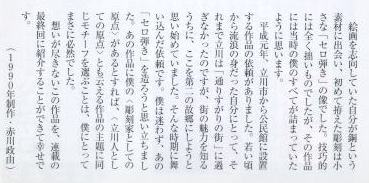 絵画を志向していた自分が銅という
素材に出会い、初めて考えた彫刻は小
さな「セロ弾き」の像でした。技術的
には全く拙いものでしたが、その作品
には当時の僕のすべてが詰まっていた
ように思います。
平成元年、立川市から公民館に設置
する作品の依頼がありました。若い頃
から流浪の身だった自分にとって、そ
れまで立川は「通りすがりの街」に過
ぎなかったのですが、街の魅力を知る
うちに、ここを第二の故郷にしようと
思い始めていました。そんな時期に舞
い込んだ依頼です。僕は迷わず、あの
「セロ弾き」を造ろうと思い立ちまし
た。あの作品に僕の〈彫刻家としての
原点〉があるとすれば、〈立川人とし
ての原点〉ともいえる作品の主題に同
じモチーフを選ぶことは、僕にとって
まさに必然でした。
想いが尽きないこの作品を、連載の
最終回に紹介することができて幸せで
す。
（１９９０年制作・赤川政由）